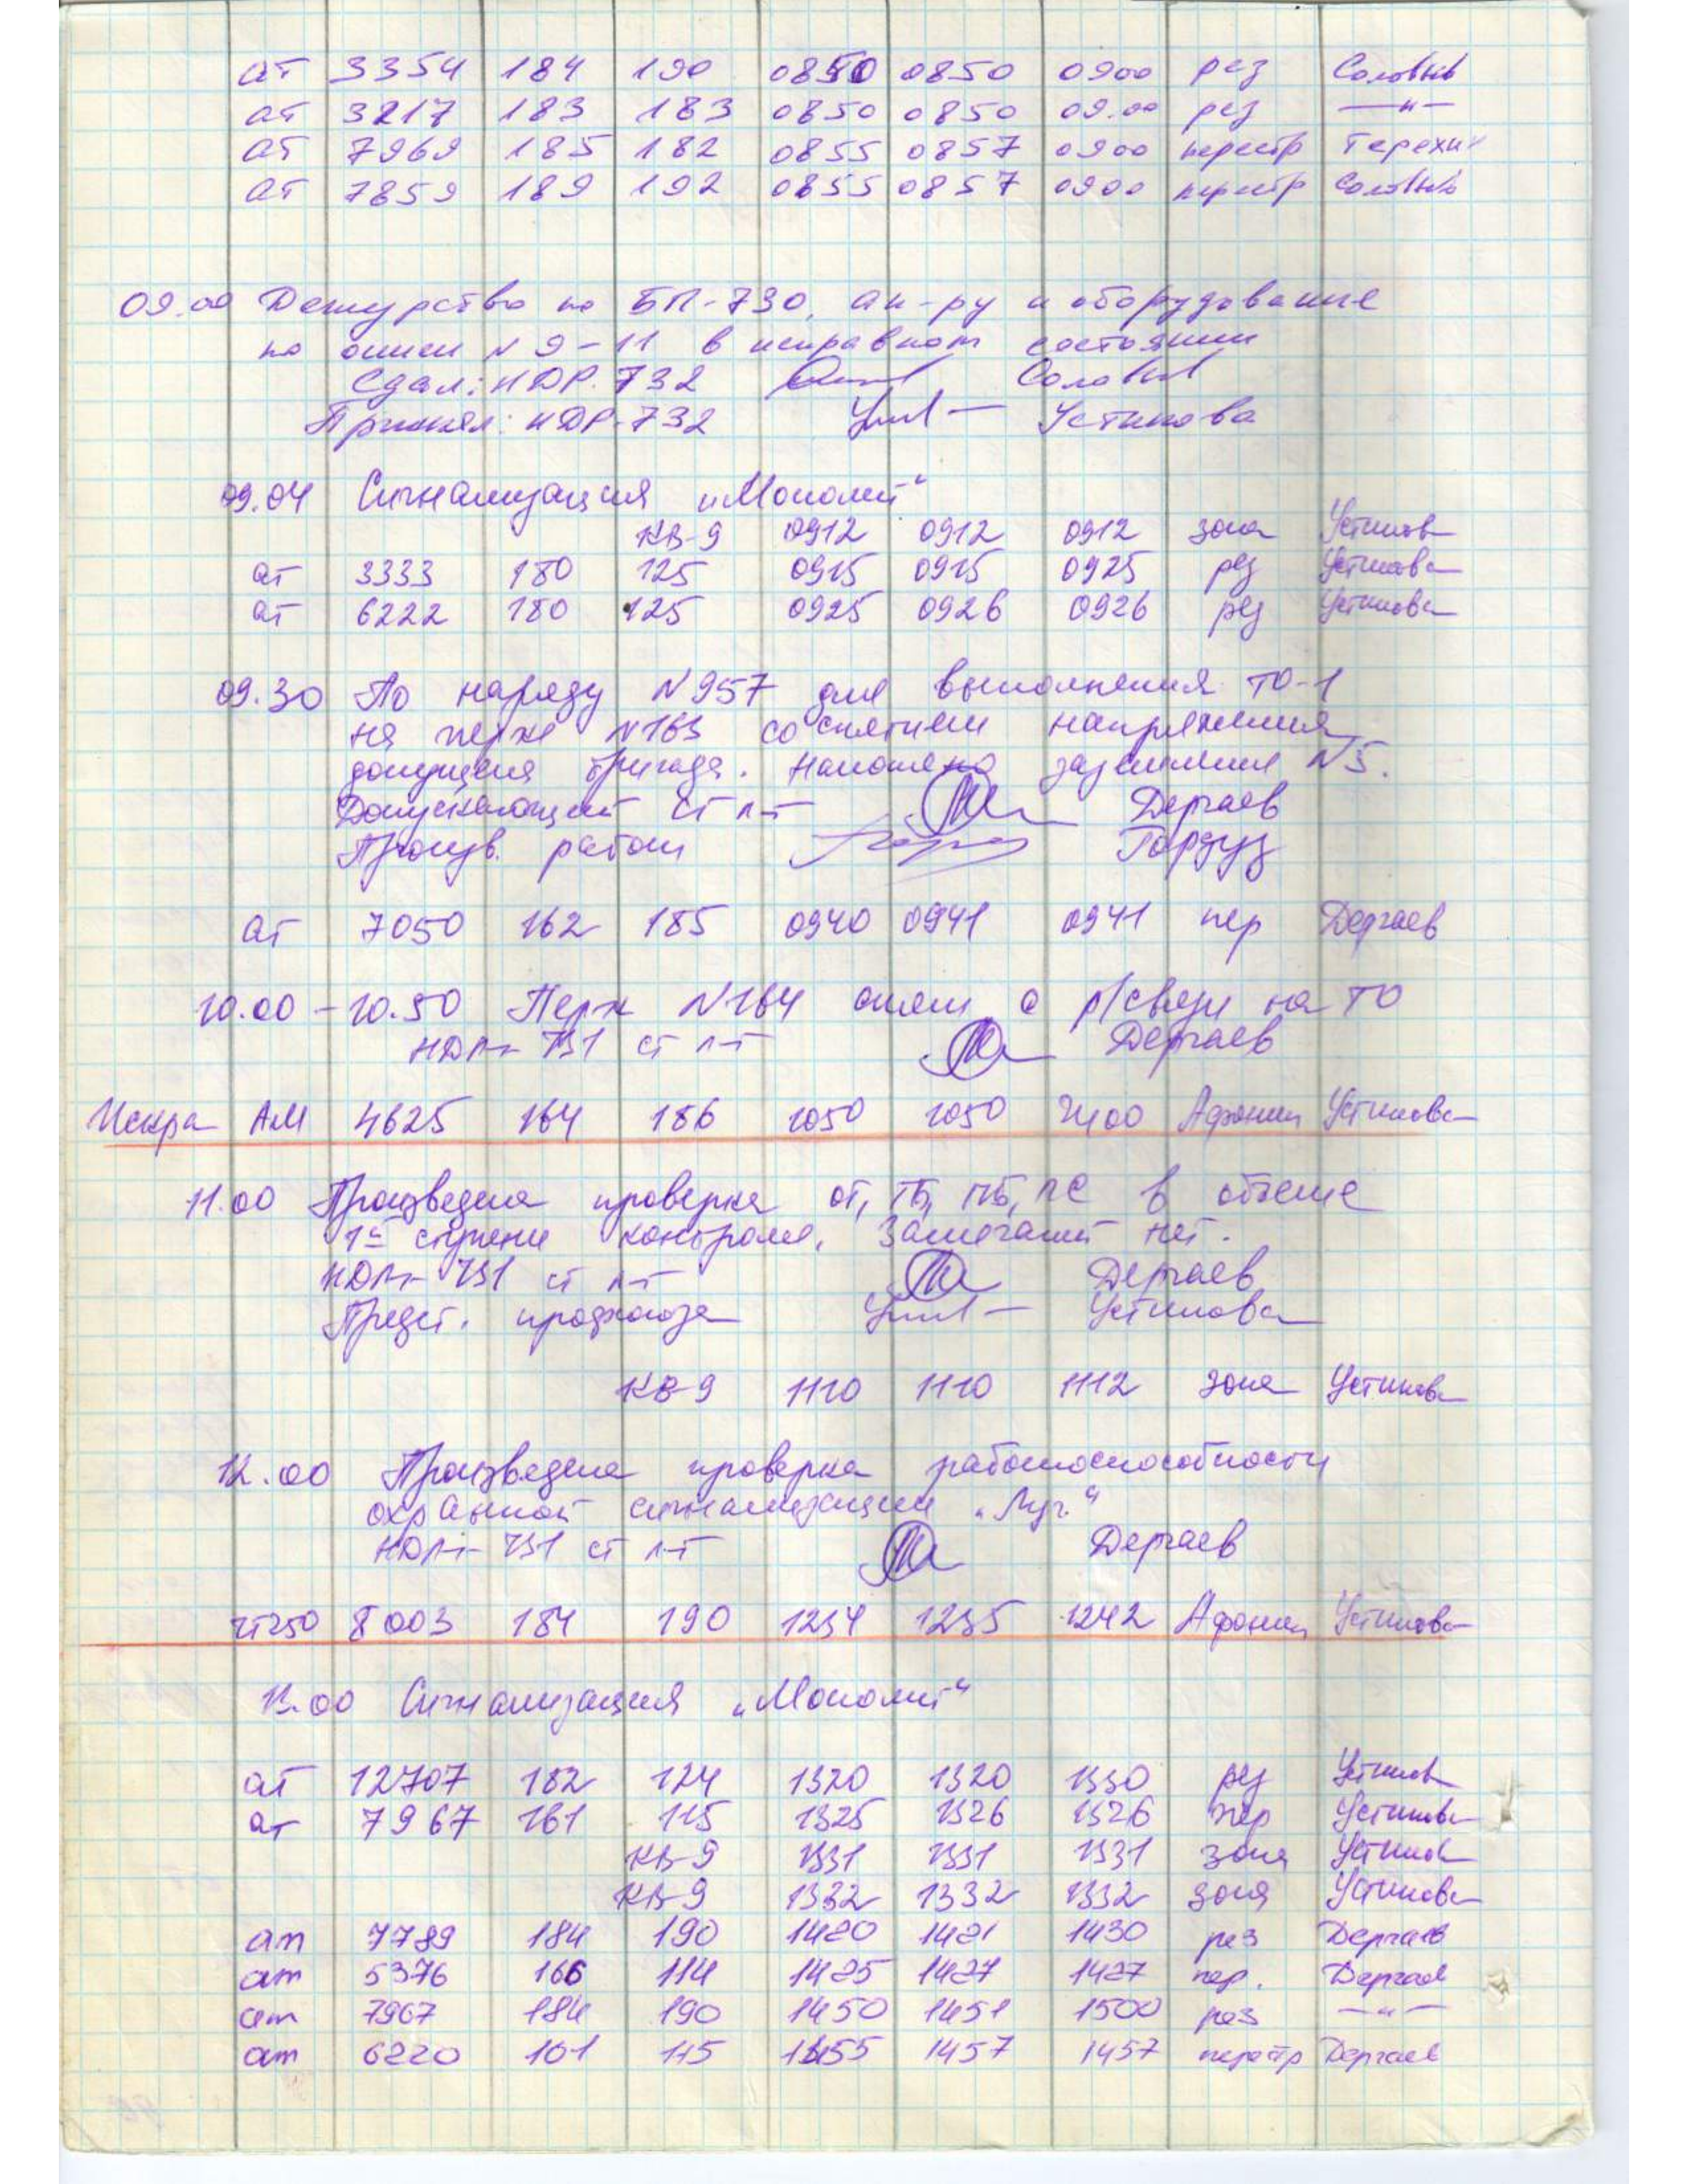 ат 3354 184 190 0850 0850 0900 рез Соловьев
ат 3217 183 183 0850 0850 09.00 рез —"—
ат 7969 185 182 0855 0857 0900 перестр Терехин
ат 7859 189 192 0855 0857 0900 перестр Соловьев
09.00 Дежурство по БП-730, ап-ру и оборудование
по описи №9-11 в исправном состоянии
Сдал: НДР-732 Соловьев
Принял: НДР-732 Устинова
09.04 Сигнализация „Монолит“
КВ-9 0912 0912 0912 зона Устинов
ат 3333 180 125 0915 0915 0925 рез Устинова
ат 6222 180 125 0925 0926 0926 рез Устинова
09.30 По наряду №957 для выполнения ТО-1
на перже №163 со снятием напряжения
допущена бригада. Наложено заземление №5.
Допускающий ст л-т Дергаев
Произв. работ Гордуз
ат 7050 162 185 0940 0941 0941 пер Дергаев
10.00 – 10.50 Перж №164 с р/связи на ТО
731 ст л-т Дергаев
Искра АМ 4625 164 186 1050 1050 2400 Афонин Устинова
11.00 Произведена проверка ОТ, ТБ, ПБ, ПС в объеме
1й ступени контроля. Замечаний нет.
731 ст л-т Дергаев
Предст. профсоюза Устинова
КВ-9 1110 1110 1112 зона Устинова
12.00 Произведена проверка работоспособности
охранной сигнализации „Луч“
731 ст л-т Дергаев
чт250 8003 184 190 1234 1235 1242 Афонин Устинова
13.00 Сигнализация „Монолит“
ат 12707 182 124 1320 1320 1330 рез Устинов
ат 7967 161 115 1325 1326 1326 пер Устинова
КВ-9 1331 1331 1331 зона Устинов
КВ-9 1332 1332 1332 зона Устинова
ат 7789 184 190 1420 1421 1430 рез Дергаев
ат 5376 166 114 1425 1427 1427 пер. Дергаев
ат 7967 184 190 1450 1451 1500 рез —"—
ат 6220 101 115 1455 1457 1457 перестр Дергаев